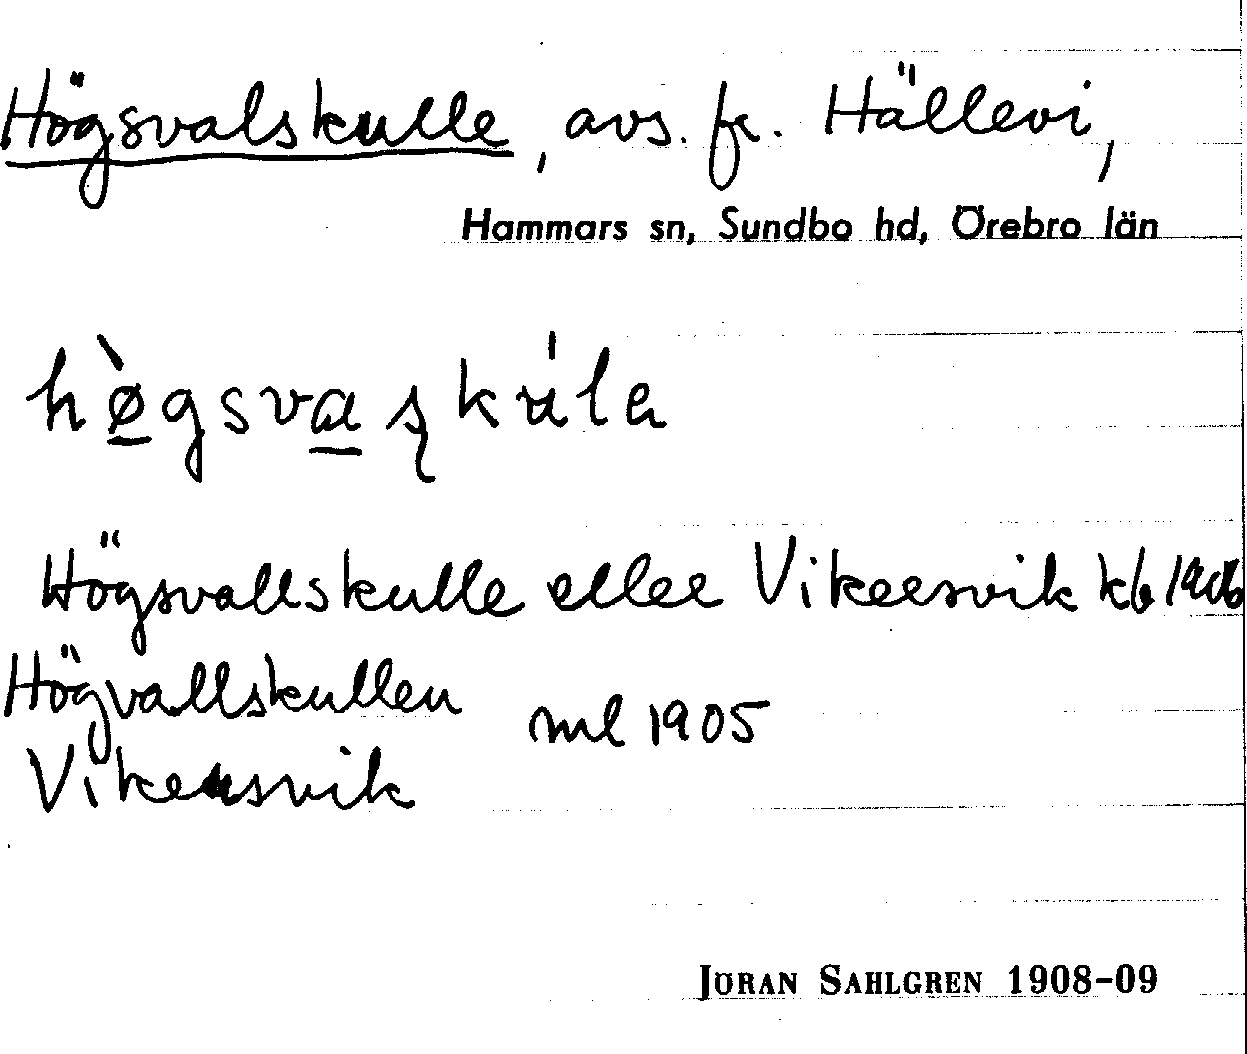 Högsvalskulle, avs. fr. Hällevi,
Hammars sn, Sundbo hd, Örebro län
hø̀gsvaʂkúla
Högsvallskulle eller Vikersvik kb 1906
Högvallskullen
ml 1905
Vikersvik
JÖRAN SAHLGREN 1908-09